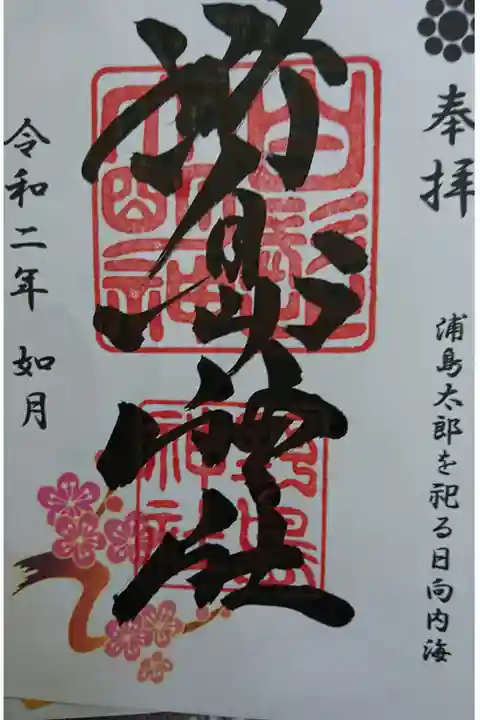 奉拝
浦島太郎を祀る日向内海
野島神社
令和二年 如月